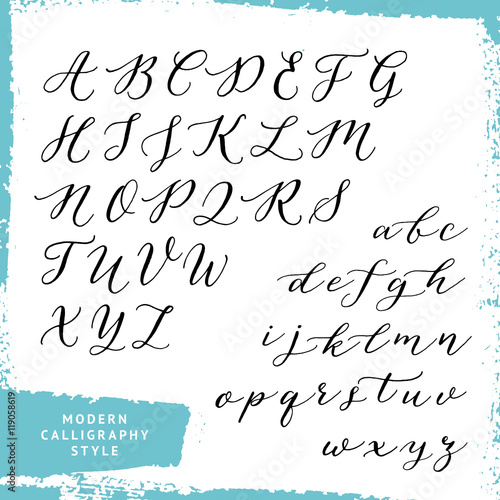 A B C D E F G
H I J K L M
N O P Q R S
T U V W
X Y Z
a b c
d e f g h
i j k l m n
o p q r s t u v
w x y z
MODERN
CALLIGRAPHY
STYLE
119058619
Adobe Stock